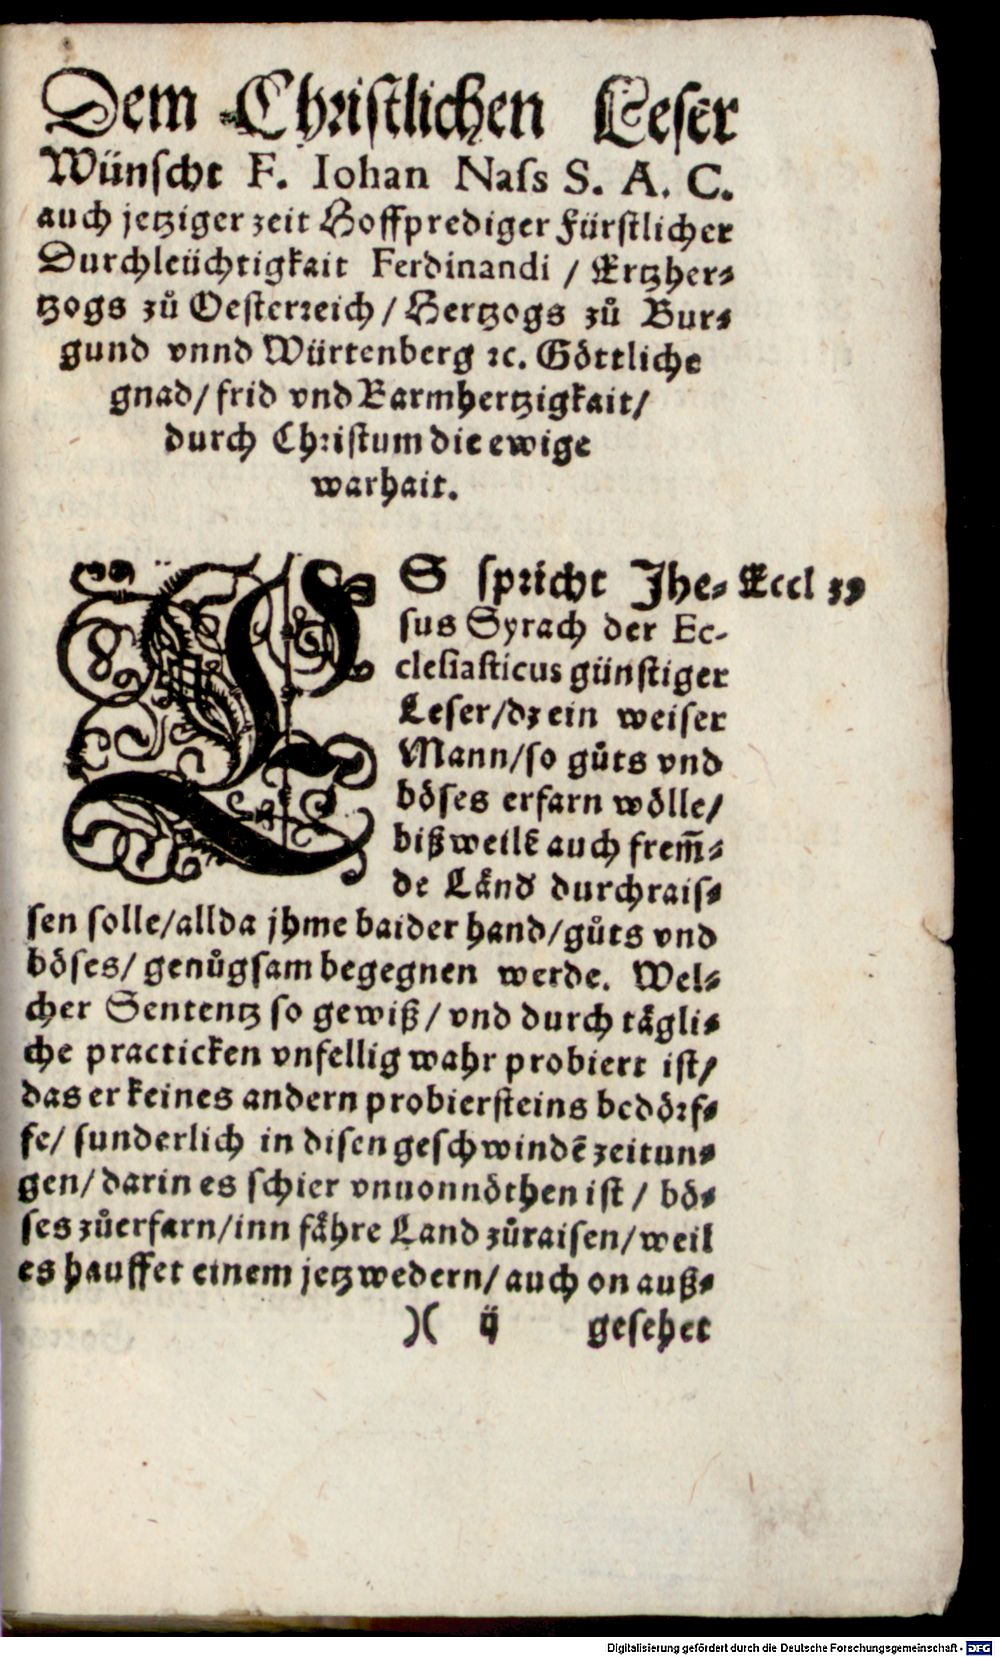 Dem Christlichen Leser
Wünscht F. Iohan Nass S. A. C.
auch jetziger zeit Hoffprediger Fürstlicher
Durchleüchtigkait Ferdinandi / Ertzher⸗
tzogs zů Oesterreich / Hertzogs zů Bur⸗
gund vnnd Würtenberg ꝛc. Göttliche
gnad / frid vnd Barmhertzigkait /
durch Christum die ewige
warhait.
ES spricht Jhe⸗ Eccl 39
sus Syrach der Ec-
clesiasticus günstiger
Leser / dz ein weiser
Mann / so gůts vnd
böses erfarn wölle /
bißweilē auch frem̄⸗
de Länd durchrais⸗
sen solle / allda jhme baider hand / gůts vnd
böses / genůgsam begegnen werde. Wel⸗
cher Sententz so gewiß / vnd durch tägli⸗
che practicken vnfellig wahr probiert ist /
das er keines andern probiersteins bedörf⸗
fe / sunderlich in disen geschwindē zeitun⸗
gen / darin es schier vnuonnöthen ist / bö⸗
ses zůerfarn / inn fähre Land zůraisen / weil
es hauffet einem jetzwedern / auch on auß⸗
)( ij gesehet
Digitalisierung gefördert durch die Deutsche Forschungsgemeinschaft - DFG